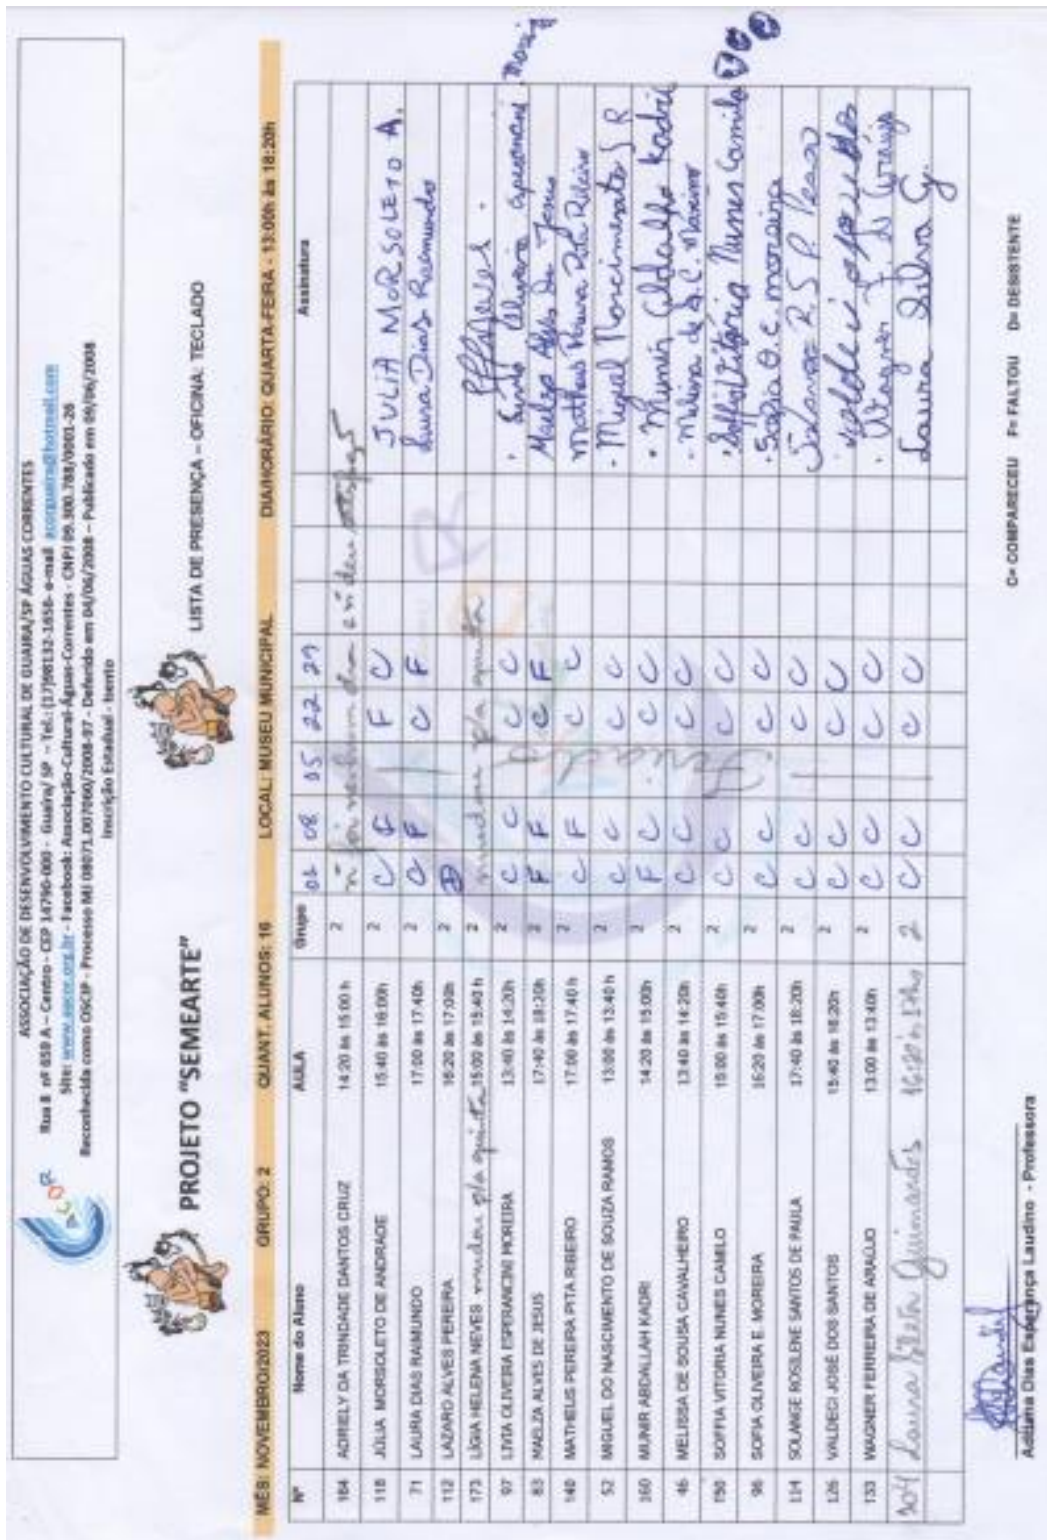 ASSOCIAÇÃO DE DESENVOLVIMENTO CULTURAL DE GUAIRA/SP ÁGUAS CORRENTES
Rua 8 nº 659 A – Centro - CEP 14790-000 - Guaíra/ SP – Tel.: (17)98132-1658- e-mail acorguaira@hotmail.com
Site: www.aacor.org.br - Facebook: Associação-Cultural-Águas-Correntes - CNPJ 09.300.788/0001-26
Reconhecida como OSCIP - Processo MJ 08071.007060/2008-97 - Deferido em 04/06/2008 – Publicado em 09/06/2008
Inscrição Estadual - Isento
PROJETO "SEMEARTE"
LISTA DE PRESENÇA – OFICINA: TECLADO
MÊS: NOVEMBRO/2023 GRUPO: 2 QUANT. ALUNOS: 16 LOCAL: MUSEU MUNICIPAL DIA/HORÁRIO: QUARTA-FEIRA - 13:00h às 18:20h
Nº Nome do Aluno AULA Grupo 01 08 15 22 29 Assinatura
184 ADRIELY DA TRINDADE DANTOS CRUZ 14:20 às 15:00 h 2 ñ foi nenhum dia
118 JÚLIA MORSOLETO DE ANDRADE 15:40 às 16:00h 2 C F F C JULIA MORSOLETO A.
71 LAURA DIAS RAIMUNDO 17:00 às 17:40h 2 C F C F Laura Dias Raimundo
112 LAZARO ALVES PEREIRA 16:20 às 17:00h 2 D
173 LÍGIA HELENA NEVES mudou p/a quinta 15:00 às 15:40 h 2 mudou p/a quinta
97 LIVIA OLIVEIRA ESPERANCINI MOREIRA 13:40 às 14:20h 2 C C C C
83 MAELZA ALVES DE JESUS 17:40 às 18:20h 2 F F C F Maelza Alves de Jesus
140 MATHEUS PEREIRA PITA RIBEIRO 17:00 às 17:40 h 2 C F C C Matheus Pereira Pita Ribeiro
52 MIGUEL DO NASCIMENTO DE SOUZA RAMOS 13:00 às 13:40 h 2 C C C C Miguel Nascimento S R
160 MUNIR ABDALLAH KADRI 14:20 às 15:00h 2 F C C C Munir Abdalla Kadri
46 MELISSA DE SOUSA CAVALHEIRO 13:40 às 14:20h 2 C C C C
150 SOFFIA VITORIA NUNES CAMILO 15:00 às 15:40h 2 C C C C Soffia Vitória Nunes Camilo
96 SOFIA OLIVEIRA E. MOREIRA 16:20 às 17:00h 2 C C C C Sofia O. E. moreira
114 SOLANGE ROSILENE SANTOS DE PAULA 17:40 às 18:20h 2 C C C C
126 VALDECI JOSÉ DOS SANTOS 15:40 às 16:20h 2 C C C C
133 WAGNER FERREIRA DE ARAÚJO 13:00 às 13:40h 2 C C C C Wagner F. de Araujo
204 Laura Silva Guimarães 16:20 às 17hs 2 C C C C Laura Silva G.
Feriado
C= COMPARECEU F= FALTOU D= DESISTENTE
Adriana Dias Esperança Laudino - Professora